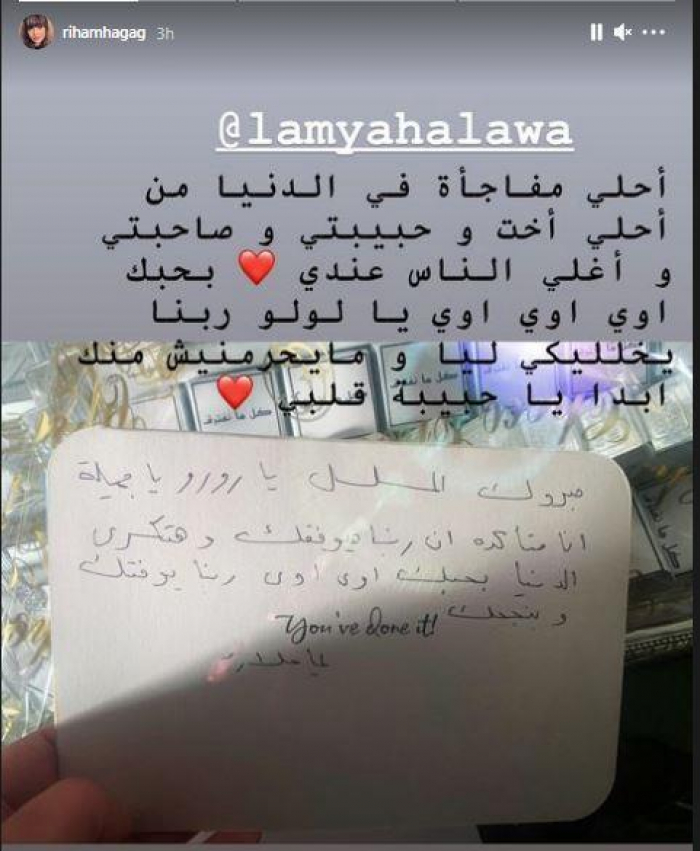 rihamhagag 3h
@lamyahalawa
أحلي مفاجأة في الدنيا من
أحلي أخت و حبيبتي و صاحبتي
و أغلي الناس عندي ❤️ بحبك
اوي اوي اوي يا لولو ربنا
يخلليكي ليا و مايحرمنيش منك
ابدا يا حبيبة قلبي ❤️
كل ما نفترق
كل ما نفترق
مبروك المسلسل يا رورو يا جميلة
انا متأكده ان ربنا هيوفقك و هتكسرى
الدنيا بحبك اوى اوى ربنا يوفقك
و ينجحك
You've done it!